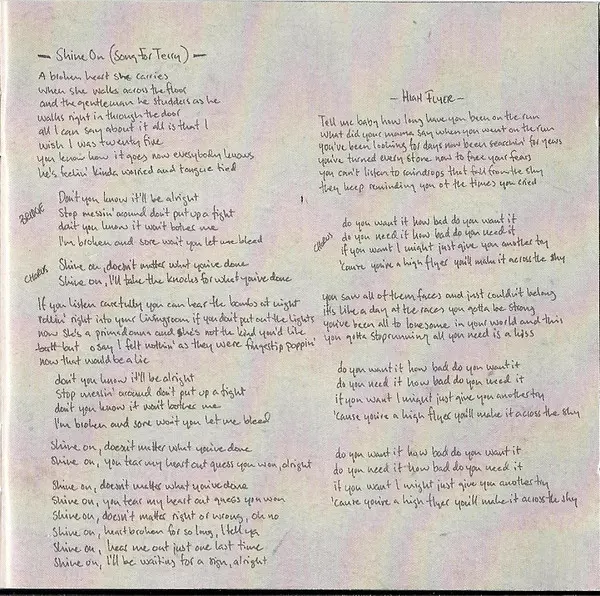 — Shine On (Song For Terry) —
A broken heart she carries
when she walks across the floor
and the gentleman he studders as he
walks right in through the door
all I can say about it all is that I
wish I was twenty five
you know how it goes now everybody knows
he's feelin' kinda worried and tongue tied
BRIDGE
Don't you know it'll be alright
Stop messin' around don't put up a fight
don't you know it won't bother me
I'm broken and sore won't you let me bleed
CHORUS
Shine on, doesn't matter what you've done
Shine on, I'll take the knocks for what you've done
If you listen carefully you can hear the bombs at night
rollin' right into your livingroom if you don't put out the lights
now she's a primadonna and she's not the kind you'd like
but o say I felt nothin' as they were fingertip poppin'
now that would be a lie
don't you know it'll be alright
Stop messin' around don't put up a fight
don't you know it won't bother me
I'm broken and sore won't you let me bleed
Shine on, doesn't matter what you've done
Shine on, you tear my heart out guess you won, alright
Shine on, doesn't matter what you've done
Shine on, you tear my heart out guess you won
Shine on, doesn't matter right or wrong, oh no
Shine on, heart broken for so long, I tell ya
Shine on, hear me out just one last time
Shine on, I'll be waiting for a sign, alright
— HIGH FLYER —
Tell me baby how long have you been on the run
What did your mama say when you went on the run
you've been looking for days now been searchin' for years
you've turned every stone now to free your fears
you can't listen to raindrops that fall from the sky
they keep reminding you of the times you cried
CHORUS
do you want it how bad do you want it
do you need it how bad do you need it
if you want I might just give you another try
'cause you're a high flyer you'll make it across the sky
you saw all of them faces and just couldn't belong
it's like a day at the races you gotta be strong
you've been all to lonesome in your world and this
you gotta stop running all you need is a kiss
do you want it how bad do you want it
do you need it how bad do you need it
if you want I might just give you another try
'cause you're a high flyer you'll make it across the sky
do you want it how bad do you want it
do you need it how bad do you need it
if you want I might just give you another try
'cause you're a high flyer you'll make it across the sky